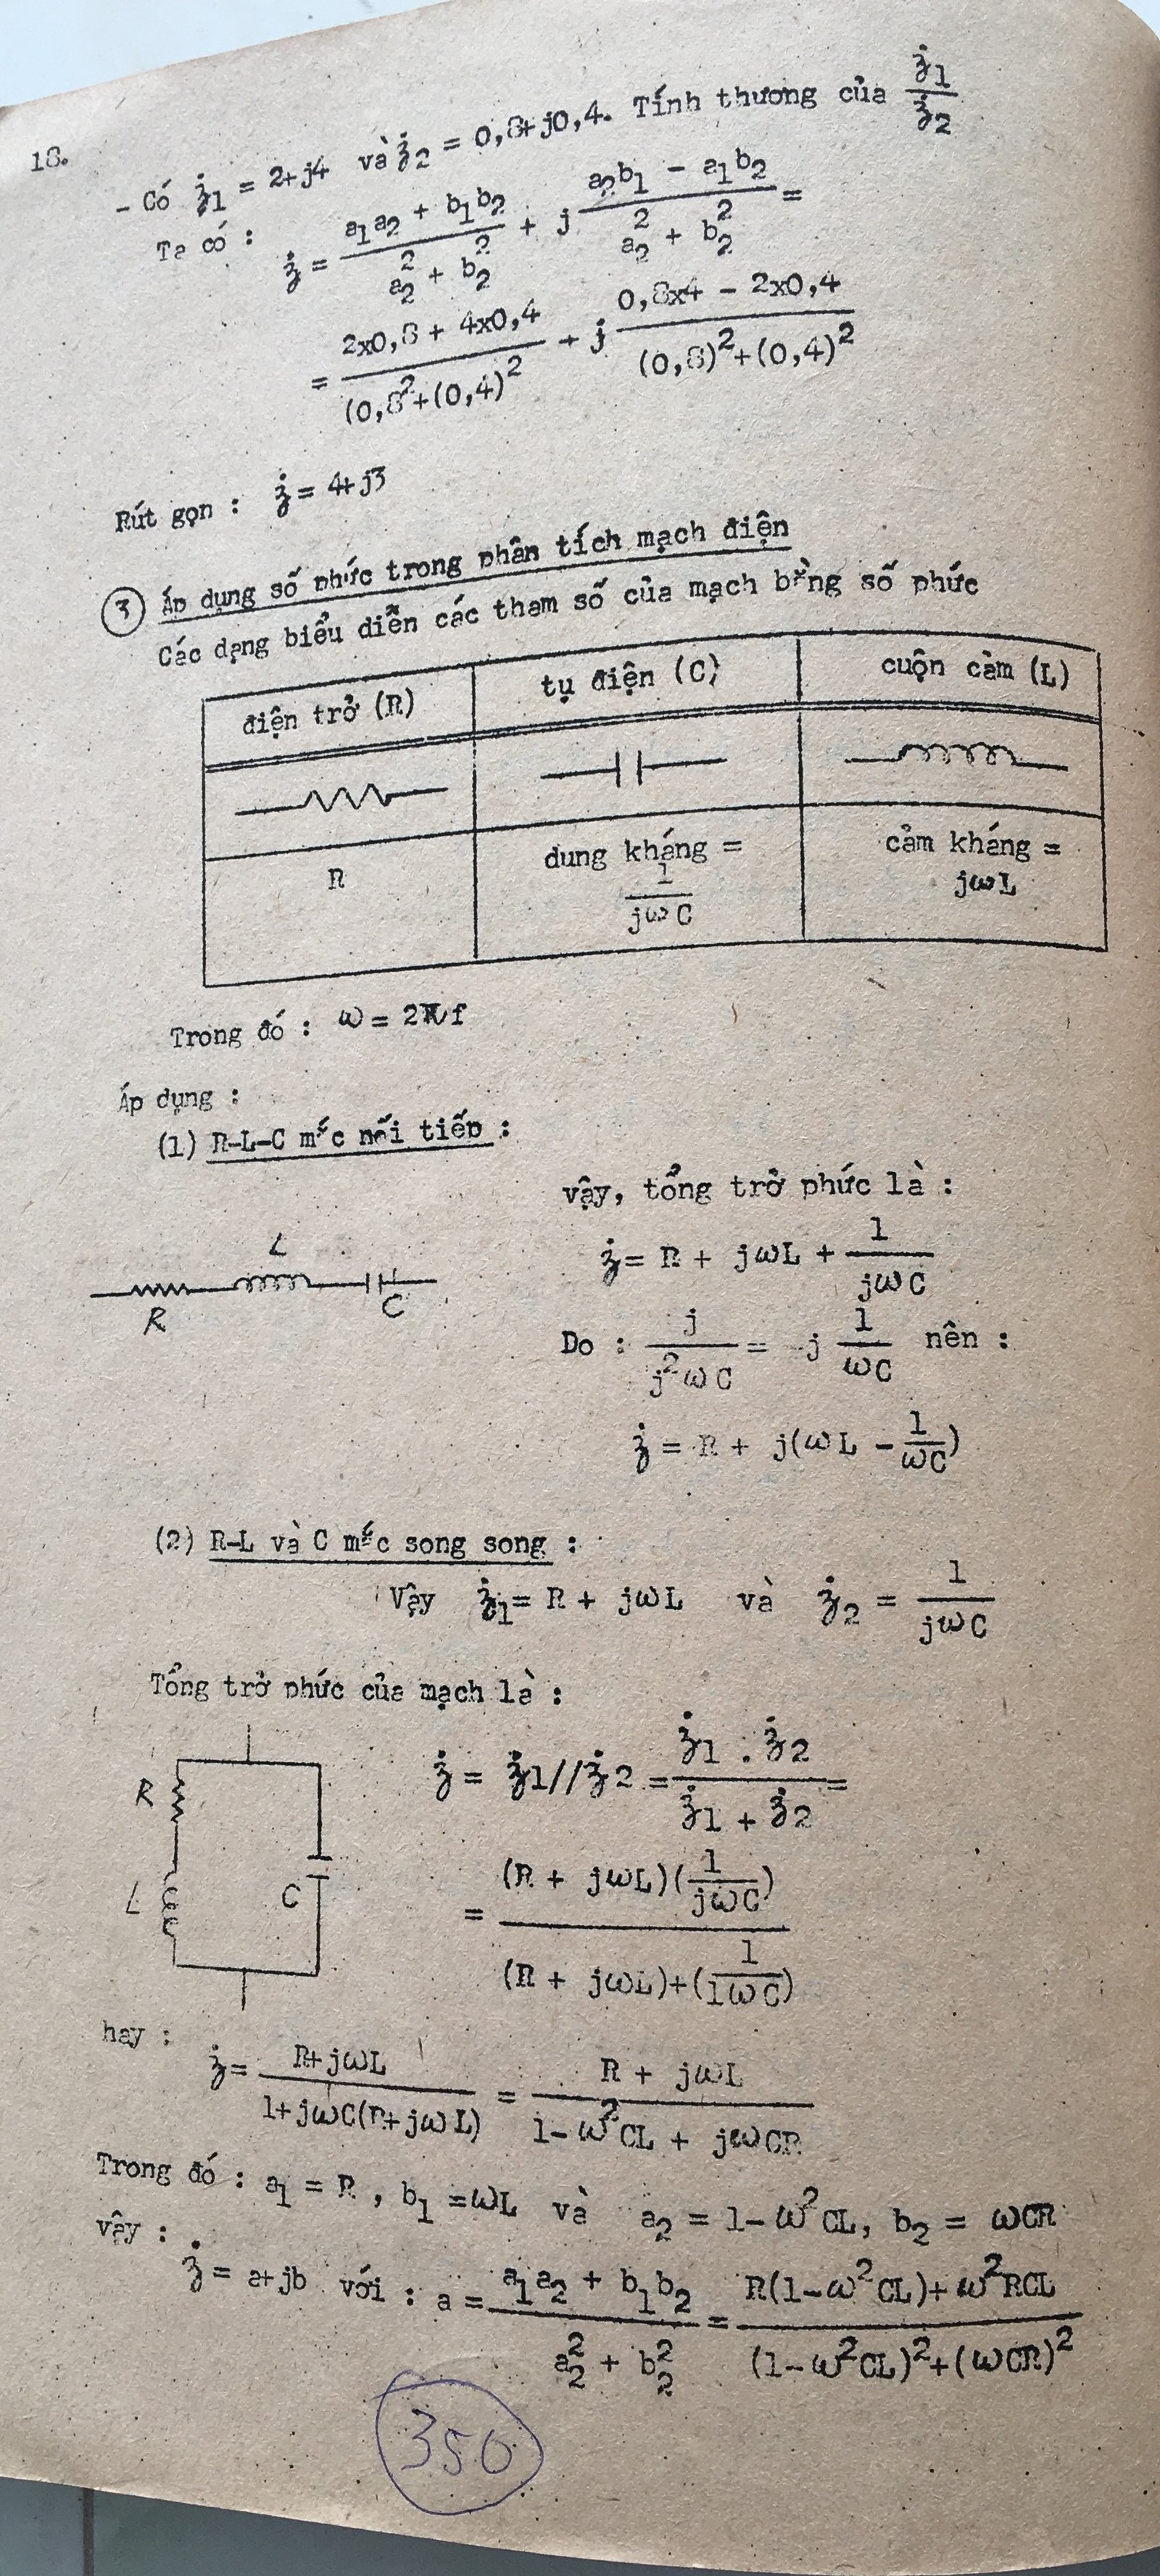 18.
- Có ż1 = 2+j4 và ż2 = 0,8+j0,4. Tính thương của ż1/ż2
Ta có : ż = (a1a2 + b1b2)/(a2² + b2²) + j (a2b1 - a1b2)/(a2² + b2²) =
= (2x0,8 + 4x0,4)/((0,8²+(0,4)²) + j (0,8x4 - 2x0,4)/((0,8)²+(0,4)²)
Rút gọn : ż = 4+j3
3 Áp dụng số phức trong phân tích mạch điện
Các dạng biểu diễn các tham số của mạch bằng số phức
điện trở (R) tụ điện (C) cuộn cảm (L)
R dung kháng = 1/jωC cảm kháng = jωL
Trong đó : ω = 2πf
Áp dụng :
(1) R-L-C mắc nối tiếp :
vậy, tổng trở phức là :
L
R
C
ż = R + jωL + 1/jωC
Do : j/j²ωC = -j 1/ωC nên :
ż = R + j(ωL - 1/ωC)
(2) R-L và C mắc song song :
Vậy ż1 = R + jωL và ż2 = 1/jωC
Tổng trở phức của mạch là :
R
L
C
ż = ż1//ż2 = ż1 . ż2/ż1 + ż2 =
= (R + jωL)(1/jωC)/(R + jωL)+(1/1ωC)
hay :
ż = R+jωL/1+jωC(R+jωL) = R + jωL/1-ω²CL + jωCR
Trong đó : a1 = R , b1 =ωL và a2 = 1-ω²CL, b2 = ωCR
vậy :
ż = a+jb với : a = a1a2 + b1b2/a2² + b2² = R(1-ω²CL)+ω²RCL/(1-ω²CL)²+(ωCR)²
350